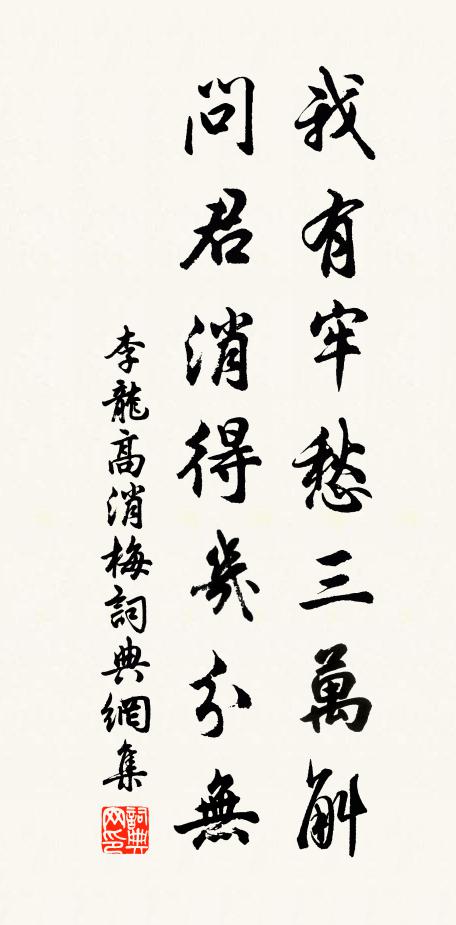 我有牢愁三萬斛
問君消得幾分無
李龍高消梅詞典網集
詞典網印